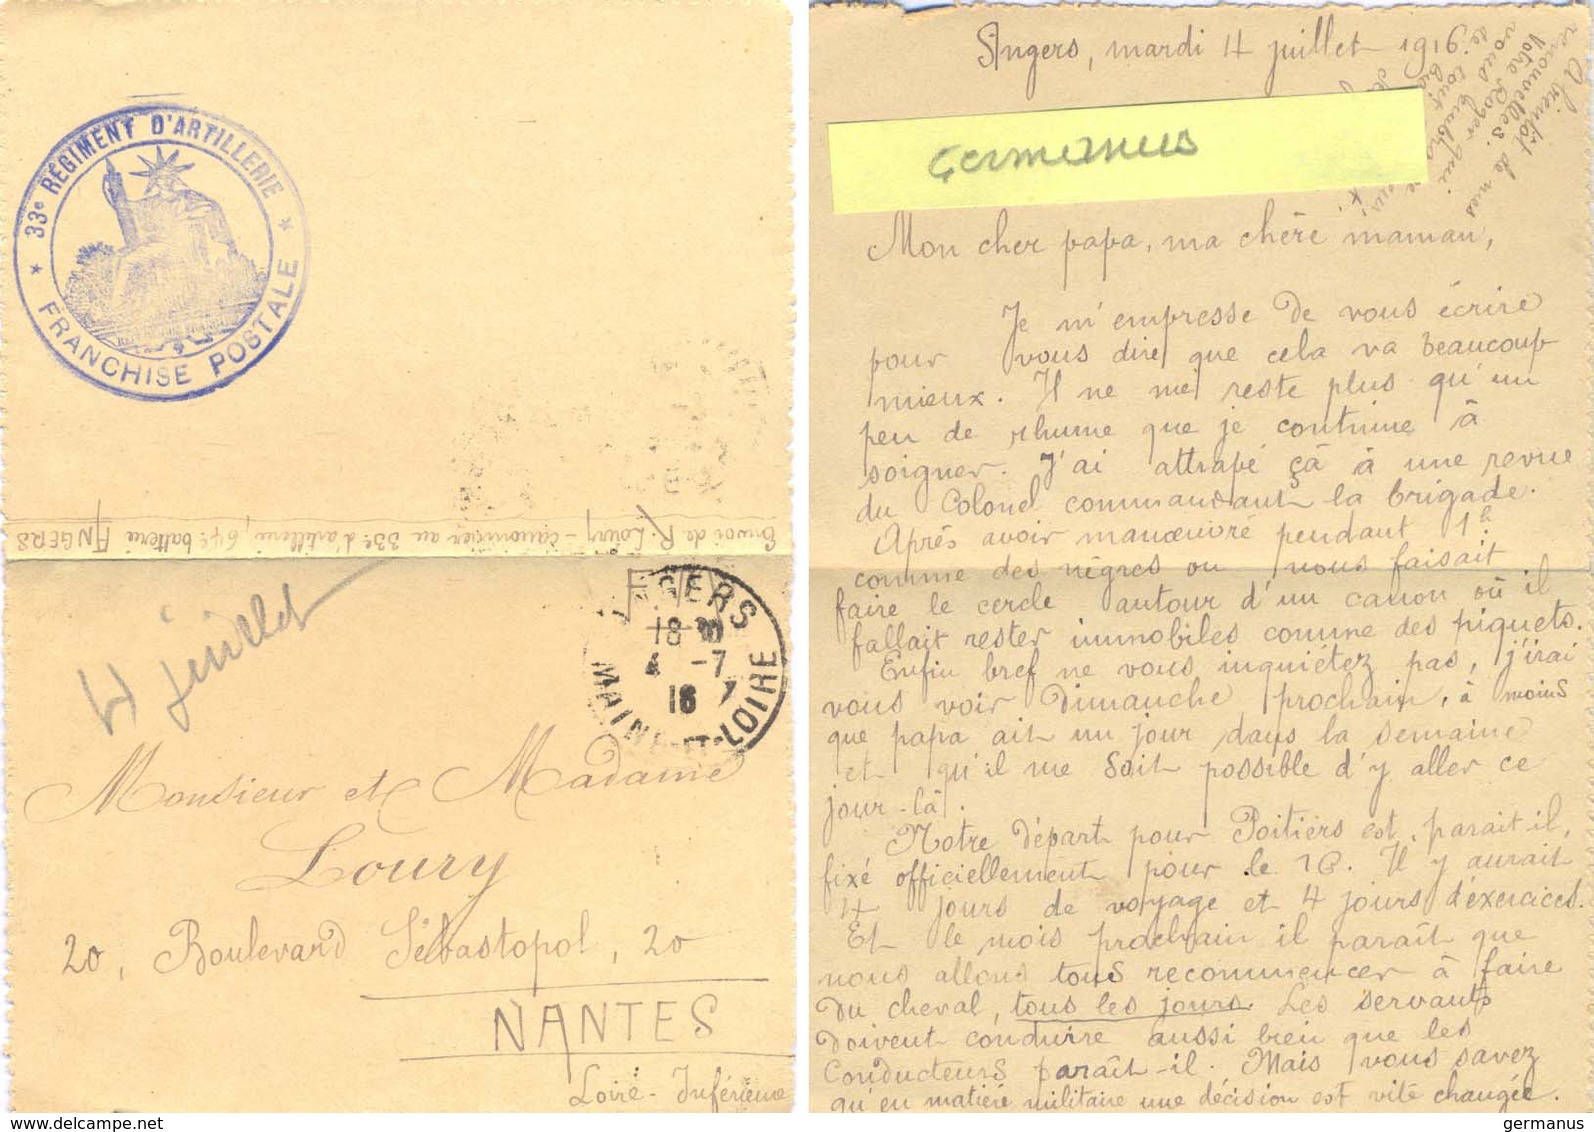 33e RÉGIMENT D'ARTILLERIE
FRANCHISE POSTALE
Envoi de R. Loury - canonnier au 33e d'artillerie, 64e batterie ANGERS
F.M
ANGERS
18 30
4 -7
16
MAINE-ET-LOIRE
4 juillet
Monsieur et Madame
Loury
20, Boulevard Sébastopol, 20
NANTES
Loire-Inférieure
Angers, mardi 4 juillet 1916.
Germanus
Mon cher papa, ma chère maman,
Je m'empresse de vous écrire
pour vous dire que cela va beaucoup
mieux. Il ne me reste plus qu'un
peu de rhume que je continue à
soigner. J'ai attrapé çà à une revue
du Colonel commandant la brigade.
Après avoir manœuvré pendant 1h
comme des nègres on nous faisait
faire le cercle autour d'un canon où il
fallait rester immobiles comme des piquets.
Enfin bref ne vous inquiétez pas, j'irai
vous voir Dimanche prochain, à moins
que papa ait un jour dans la semaine
et qu'il me soit possible d'y aller ce
jour-là.
Notre départ pour Poitiers est, parait-il,
fixé officiellement pour le 16. Il y aurait
4 jours de voyage et 4 jours d'exercices.
Et le mois prochain il paraît que
nous allons tous recommencer à faire
du cheval, tous les jours. Les servants
doivent conduire aussi bien que les
conducteurs paraît-il. Mais vous savez
qu'en matière militaire une décision est vite changée.
A bientôt de mes
nouvelles.
Votre Roger qui
vous
germanus